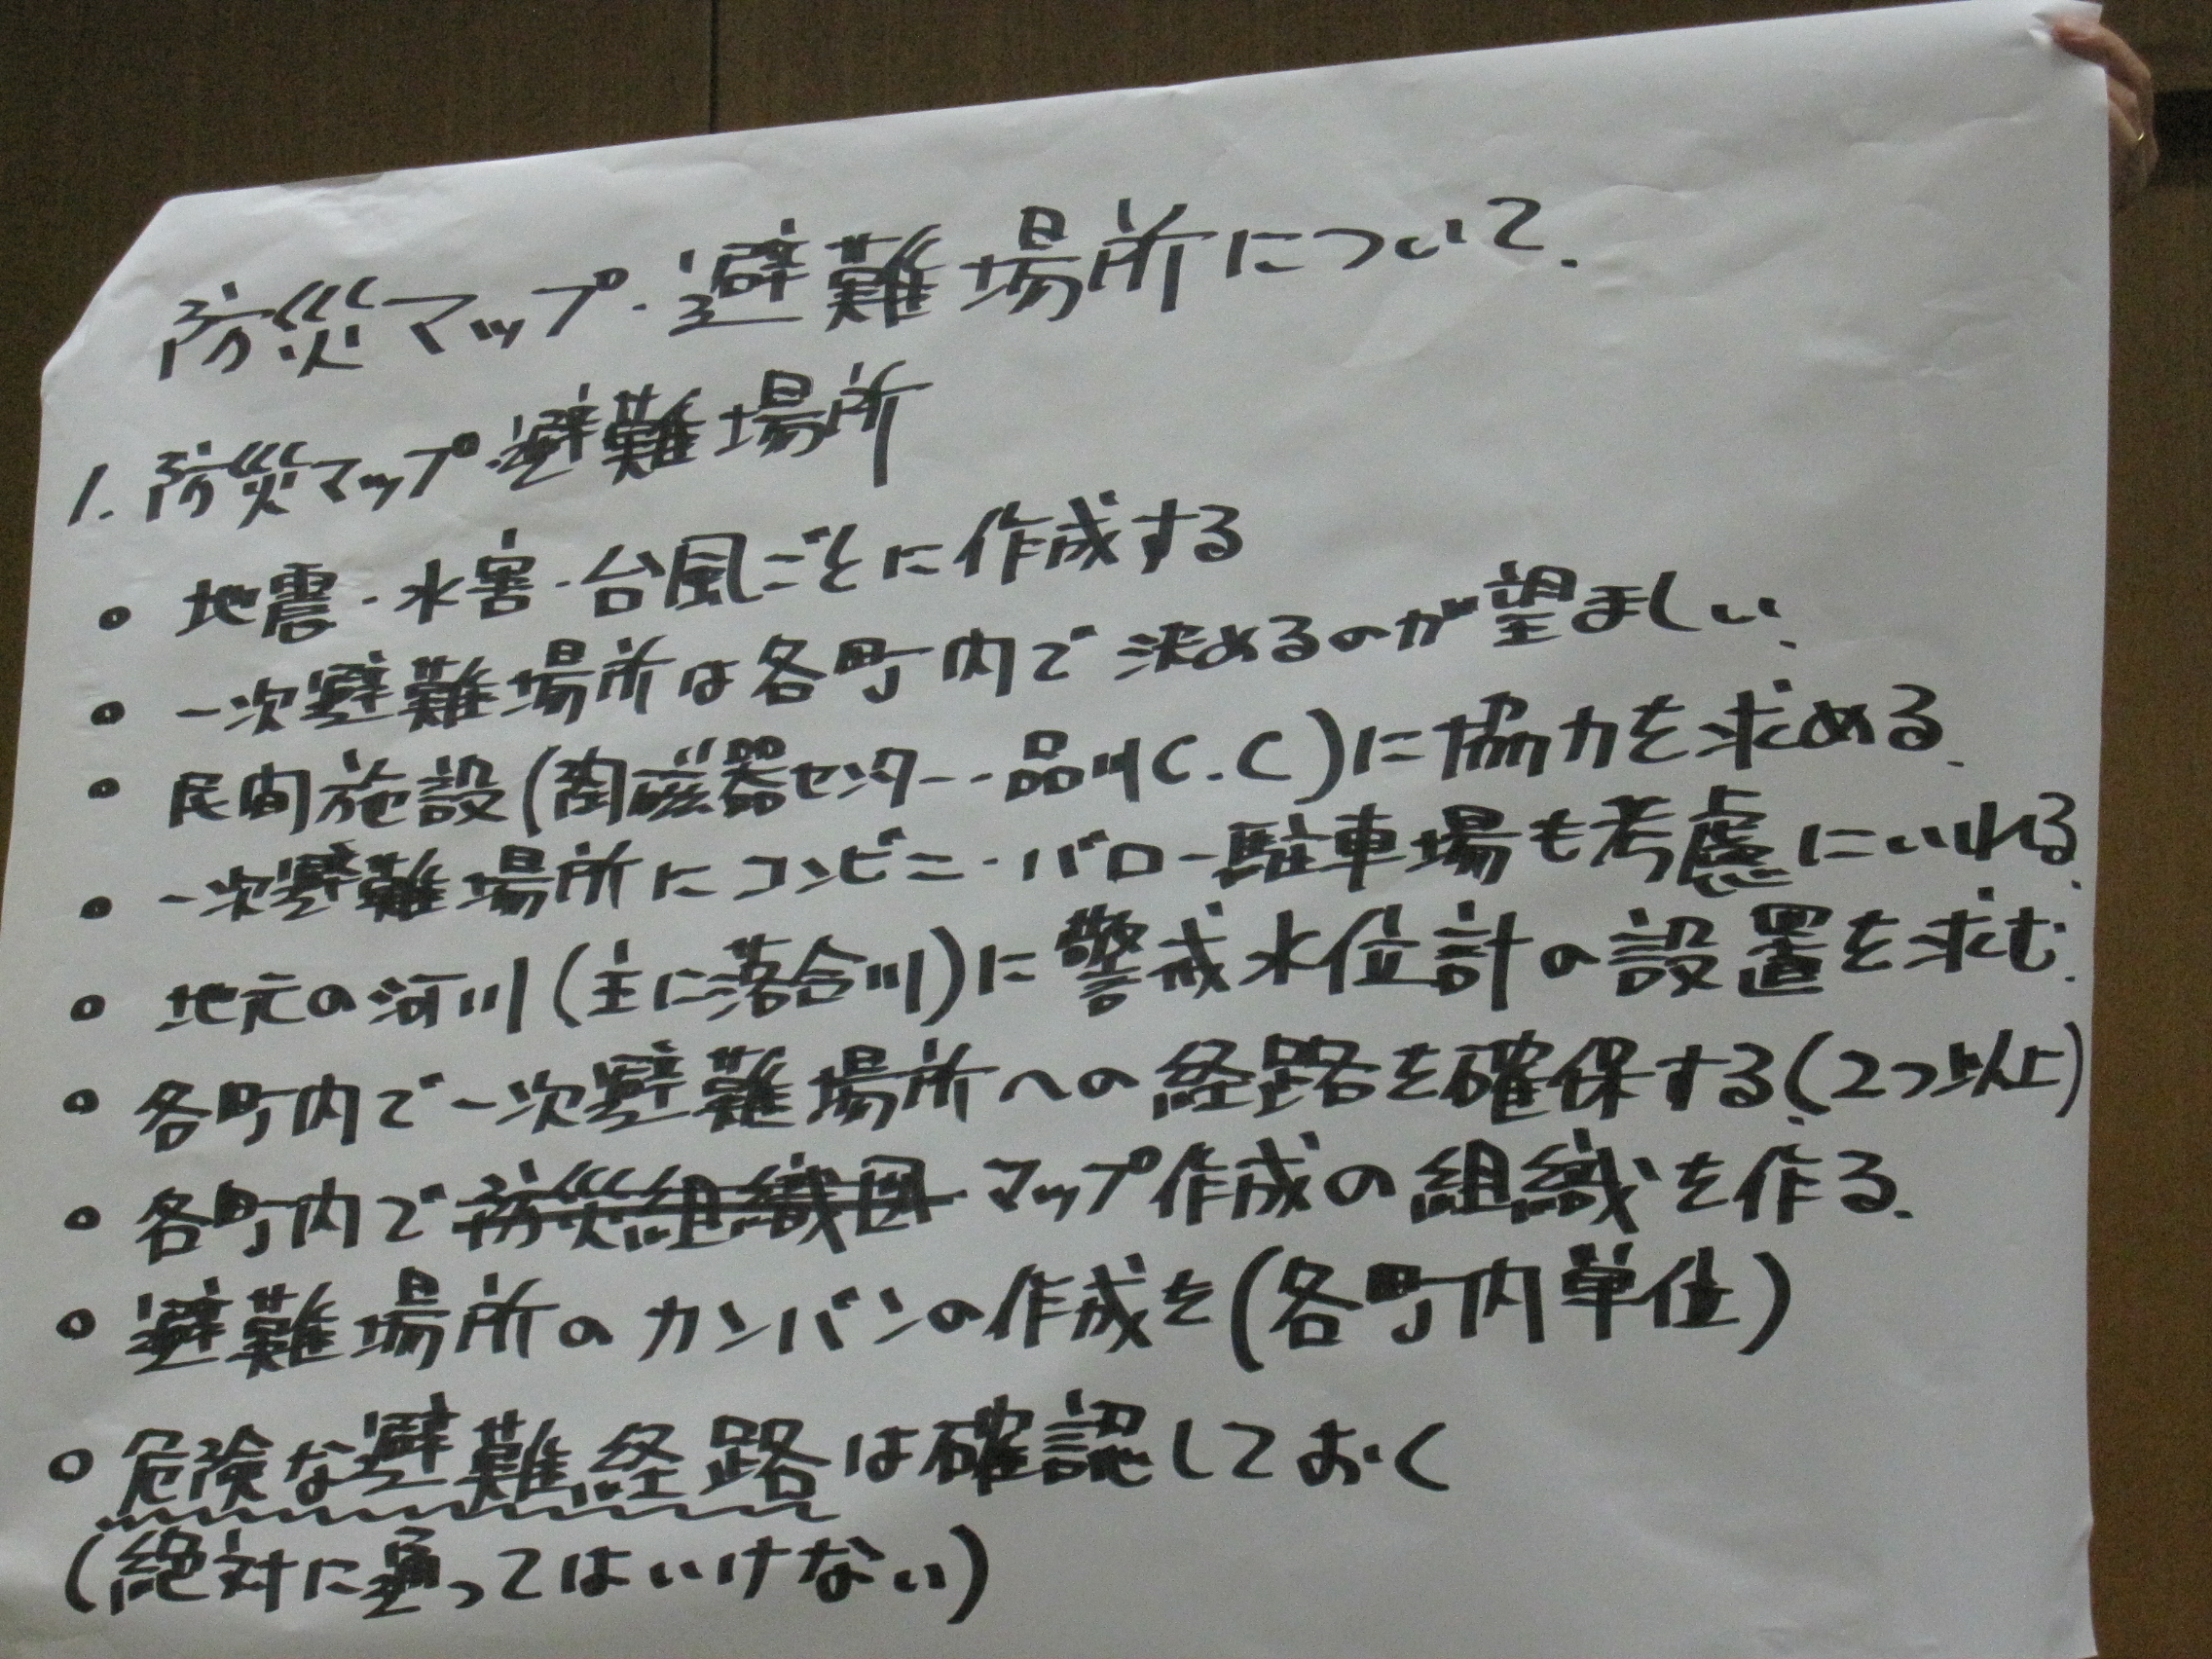 防災マップ・避難場所について.
1. 防災マップ・避難場所
○ 地震・水害・台風ごとに作成する
○ 一次避難場所は各町内で決めるのが望ましい.
○ 民間施設(陶磁器センター・品川C.C)に協力を求める.
○ 一次避難場所にコンビニ・バロー駐車場も考慮にいれる.
○ 地元の河川(主に落合川)に警戒水位計の設置を求む.
○ 各町内で一次避難場所への経路を確保する.(2つ以上)
○ 各町内で防災組織図マップ作成の組織を作る.
○ 避難場所のカンバンの作成を(各町内単位)
○ 危険な避難経路は確認しておく
(絶対に通ってはいけない)